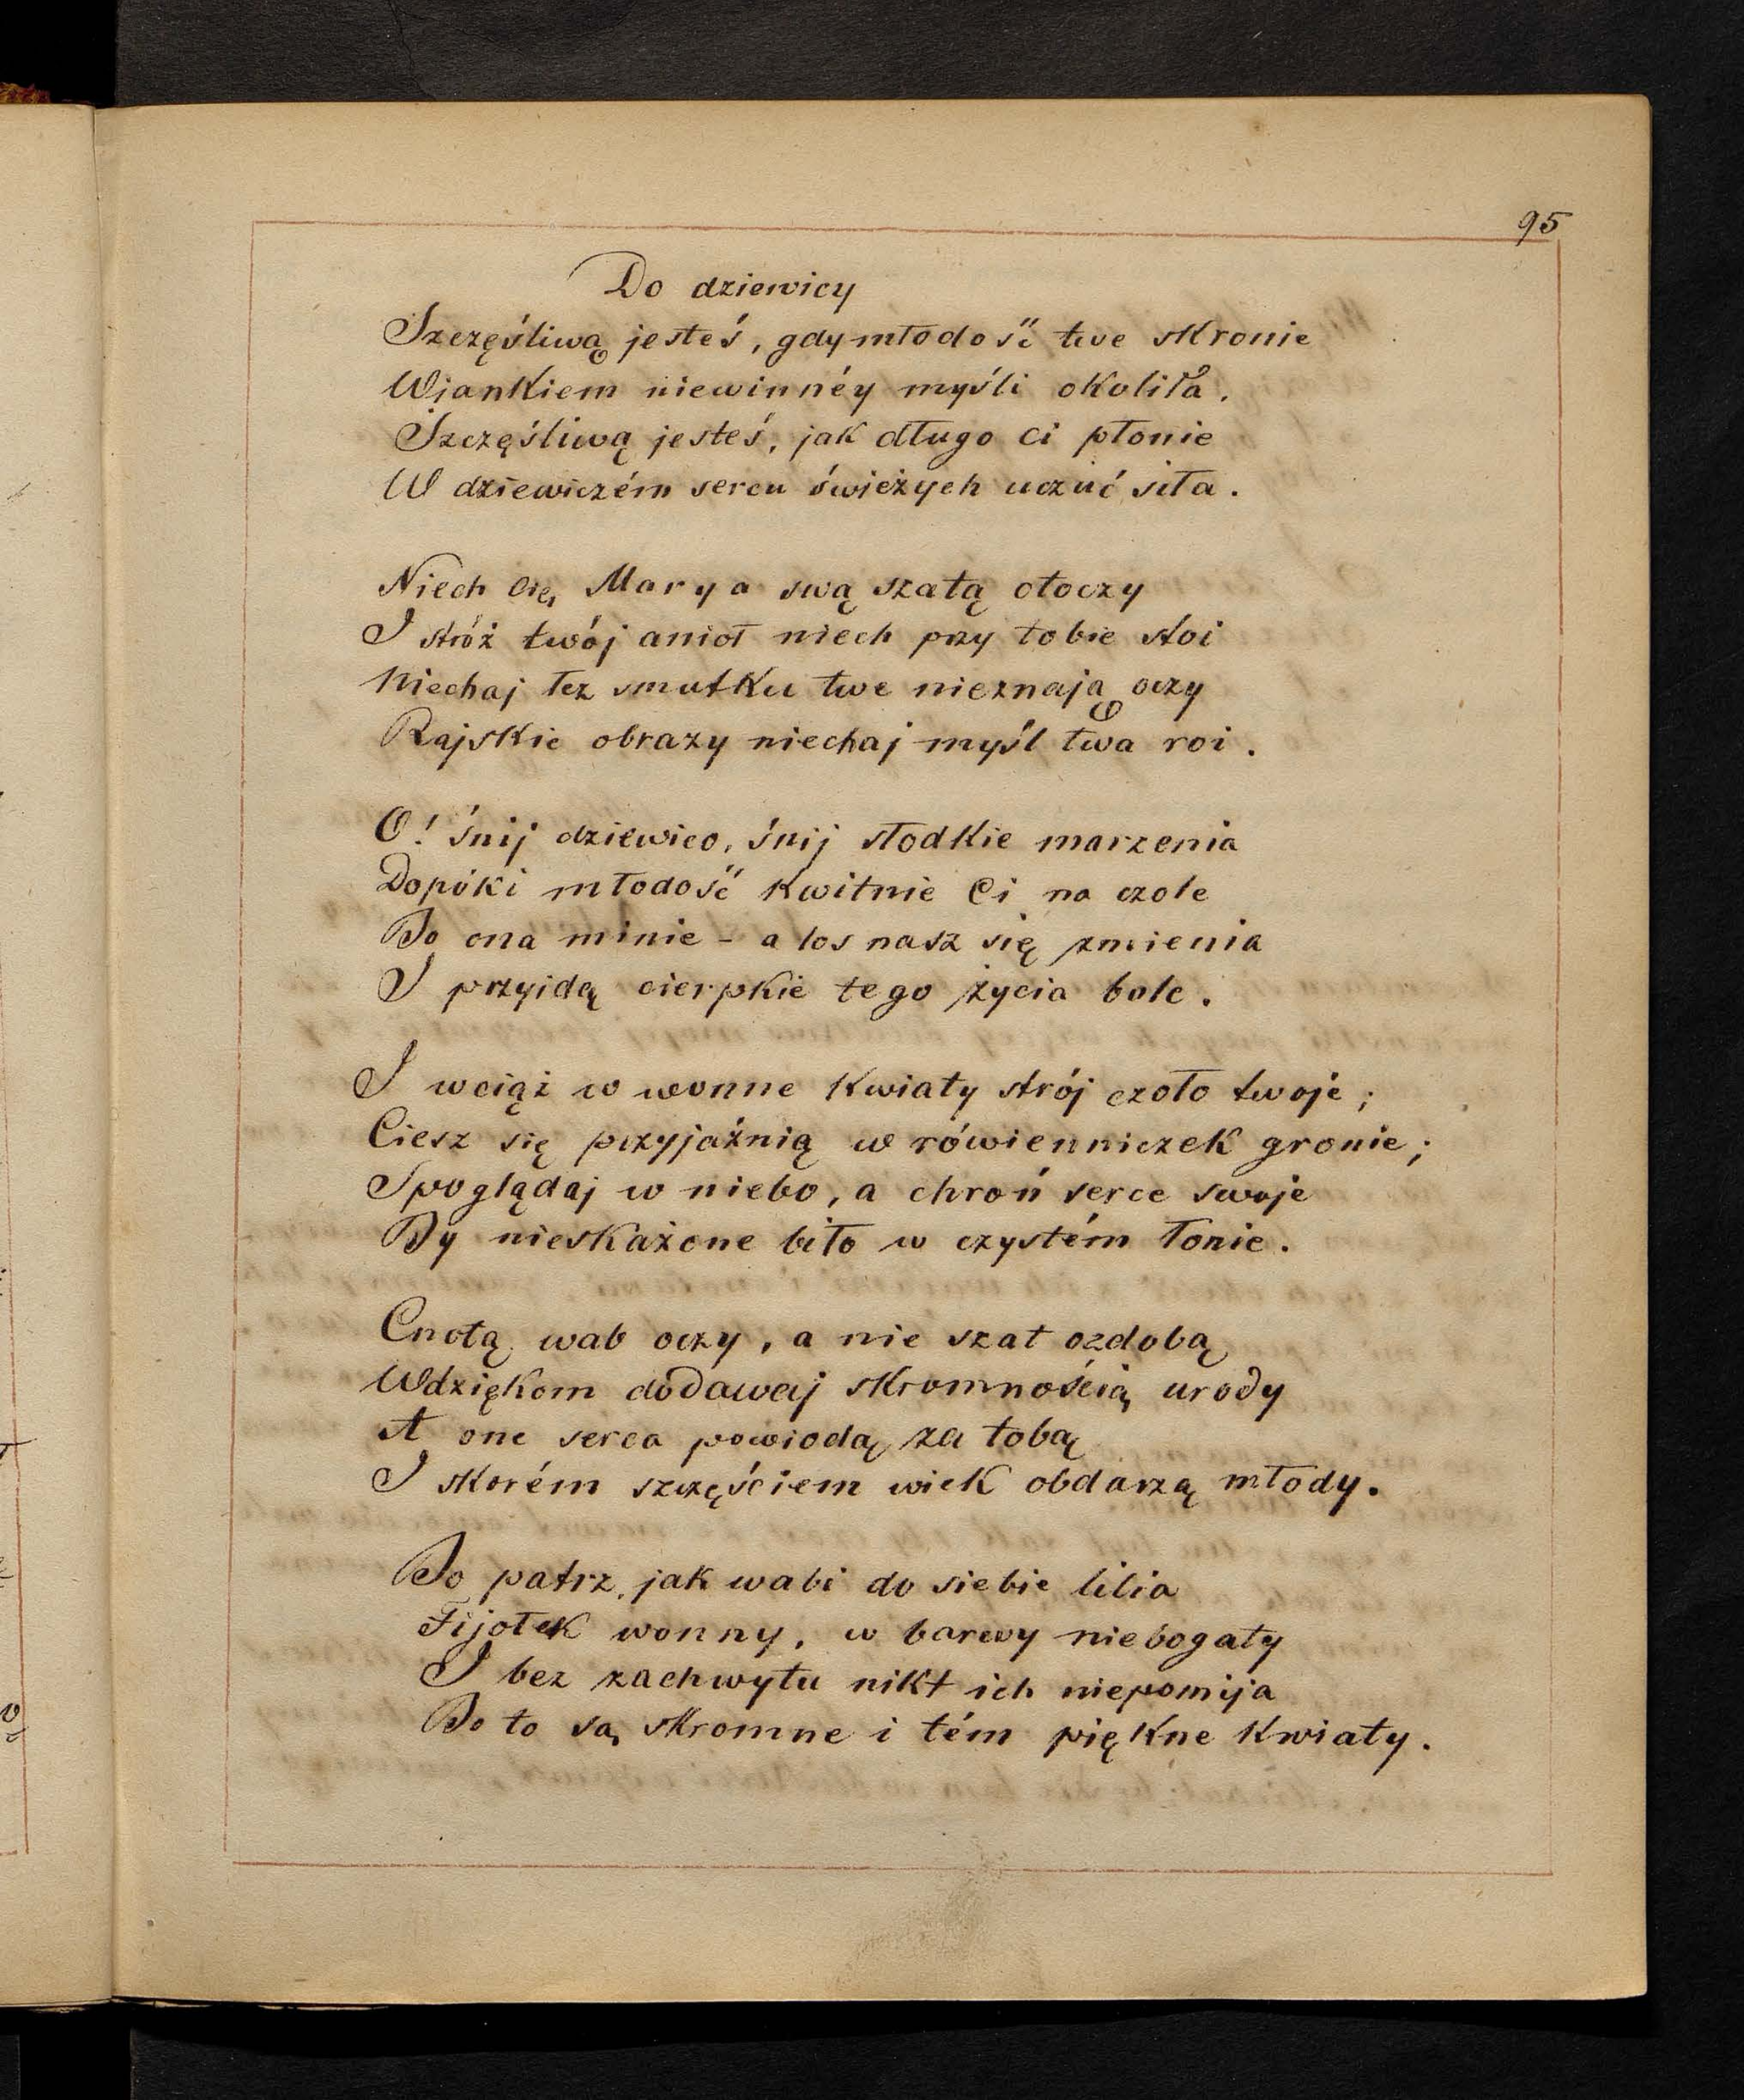 95
Do dziewicy
Szczęśliwą jesteś, gdy młodość twe skronie
Wiankiem niewinnéy myśli okoliła.
Szczęśliwą jesteś, jak długo ci płonie
W dziewiczém sercu świeżych uczuć siła.
Niech Cię Marya swą szatą otoczy
I stróż twój anioł niech przy tobie stoi
Niechaj łez smutku twe nieznają oczy
Rajskie obrazy niechaj myśl twa roi.
O! śnij dziewico, śnij słodkie marzenia
Dopóki młodość kwitnie Ci na czole
Bo ona minie - a los nasz się zmienia
I przyidą cierpkie tego życia bole.
I wciąż w wonne kwiaty strój czoło twoje;
Ciesz się przyjaźnią w rówienniczek gronie;
Spoglądaj w niebo, a chroń serce swoje
By nieskażone biło w czystém łonie.
Cnotą wab oczy, a nie szat ozdobą
Wdziękom dodawaj skromnością urody
A one serca powiodą za tobą
I skorém szczęściem wiek obdarzą młody.
Bo patrz, jak wabi do siebie lilia
Fijołek wonny, w barwy niebogaty
I bez zachwytu nikt ich niepomija
Bo to są skromne i tém piękne kwiaty.